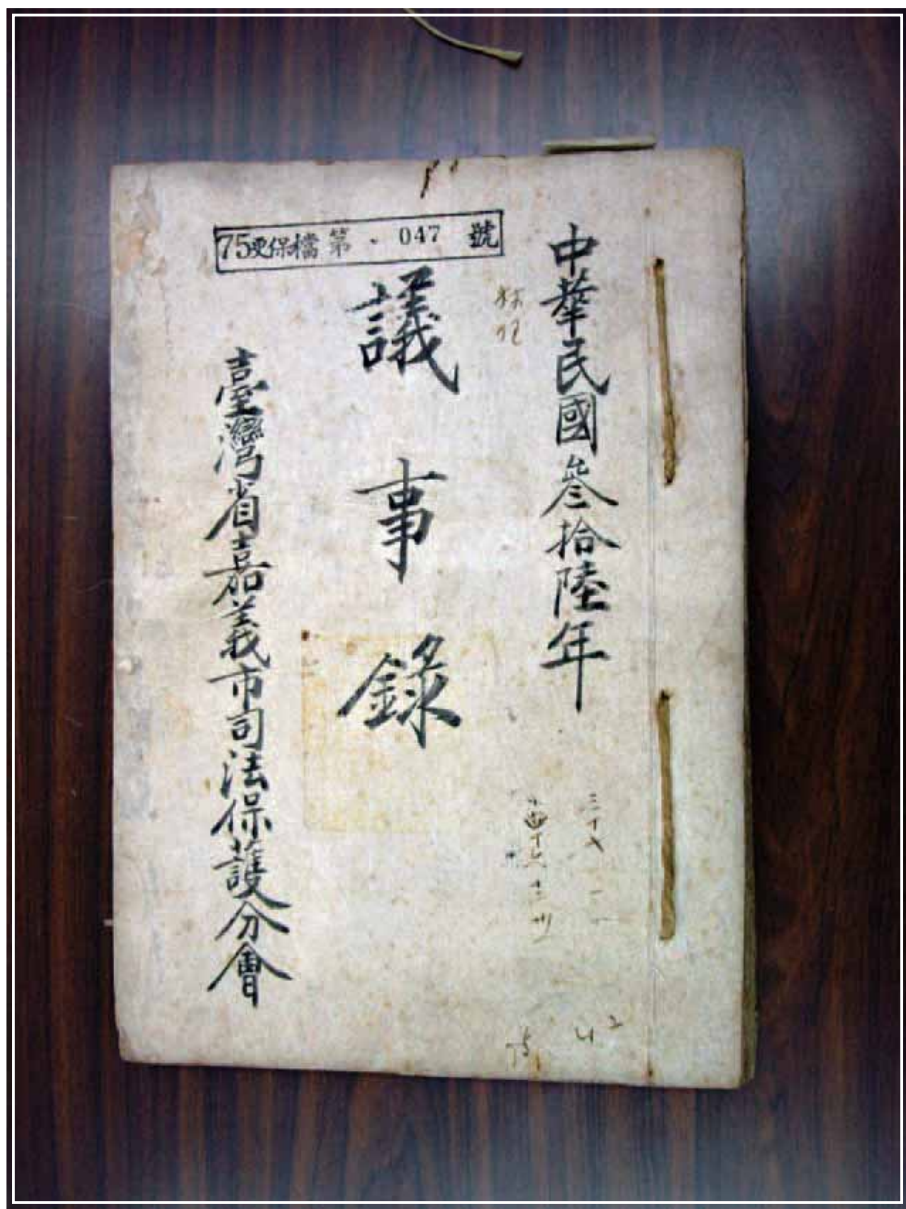 75更保檔第 . 047 號
中華民國參拾陸年
議事錄
臺灣省嘉義市司法保護分會